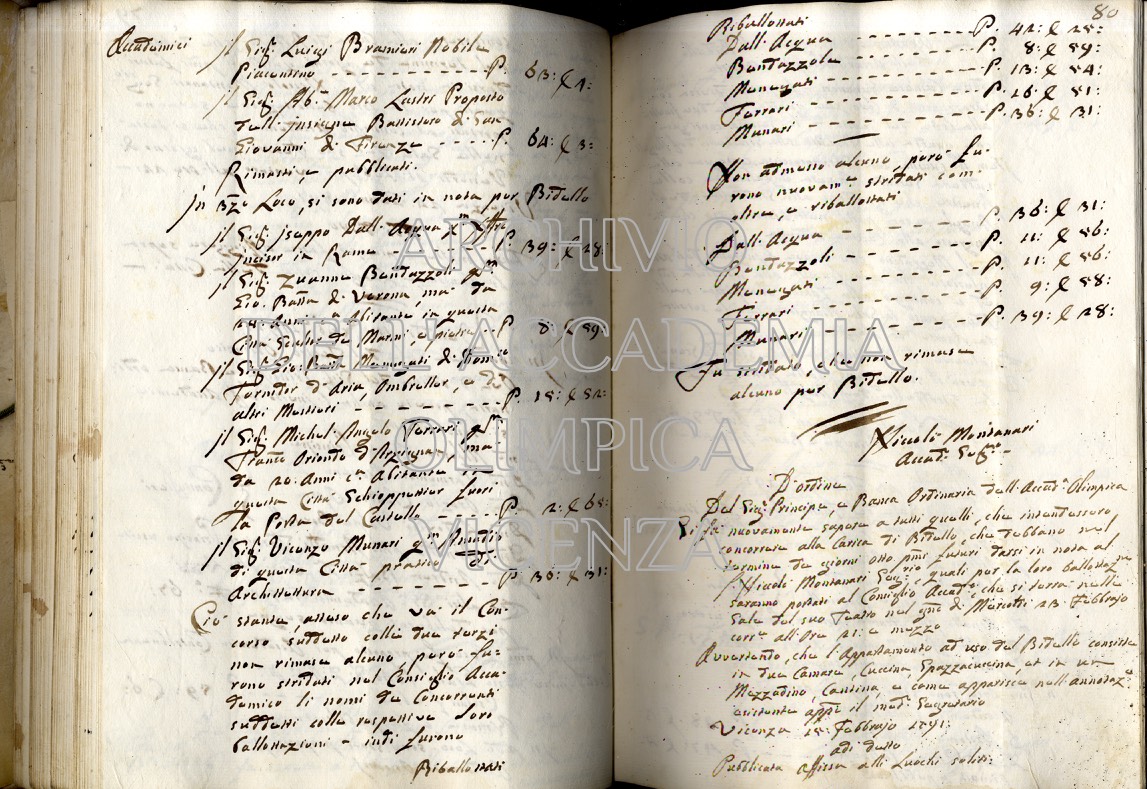 Accademici
il Sig.r Luigi Bramieri Nobile
Piacentino - - - - - - - - - - P. 63: C 4:
il Sig.r Ab.e Marco Lastri Proposto
dell'insigne Battistero di San
Giovanni di Firenze - - - - - P. 64: C 3:
Rimasti, e pubblicati.
In 3zo Loco, si sono dati in nota per Bidello
il Sig.r Iseppo Dall'Acqua
Incisor in Rame - - P. 39: C 28:
il Sig.r Zuanne Bendazzoli q.m
Gio: Batta di Verona, ma da
Anni abitante in questa
Città - P. 8: C 59:
il Sig.r Gio: Batta Menegati
Fornitor d'Aria, Ombreller, e di
altri Mestieri - - - - - - - - P. 15: C 52:
il Sig.r Michel Angelo Ferrari q.m
Franco Oriondo d'Arzignan, ma
da 20. Anni c.a Abitante in
questa Città Schioppettier fuori
la Porta del Castello - - - - P. 2: C 65:
il Sig.r Vicenzo Munari q.m
di questa Città pratico di
Architettura - - - - - - - - P. 36: C 31:
Ciò stante atteso che va il Con-
corso suddetto colli due terzi
non rimase alcuno però fu-
rono stridati nel Consiglio Acca-
demico li nomi de Concorrenti
suddetti colle respettive loro
ballottazioni e indi furono
Riballottati
80
Riballottati
Dall'Acqua - - - - - - - - P. 42: C 25:
Bendazzole - - - - - - - - P. 8: C 59:
Menegati - - - - - - - - P. 13: C 54:
Ferrari - - - - - - - - P. 16: C 51:
Munari - - - - - - - - P. 36: C 31:
Non admesso alcuno, però fu-
rono nuovam.e stridati com-
oltre, e riballottati
Dall'Acqua - - - - - - - - P. 36: C 31:
Bendazzoli - - - - - - - - P. 11: C 56:
Menegati - - - - - - - - P. 11: C 56:
Ferrari - - - - - - - - P. 9: C 58:
Munari - - - - - - - - P. 39: C 28:
Fu stridato, che non rimase
alcuno per Bidello.
Niccolò Montanari
Accad.o Seg.rio
D'ordine
Del Sig.r Principe, e Banca Ordinaria dell'Accad.a Olimpica
Si fa nuovamente sapere a tutti quelli, che intendessero
concorrere alla Carica di Bidello, che debbano nel
termine de giorni otto pmi. futuri darsi in nota al
Niccolò Montanari Seg.rio, quali per la loro ballottaz.ne
saranno portati al Consiglio Accad.o che si terrà nelle
Sale del suo Teatro nel gno di Martedì 23: Febbrajo
corr.e all'Ore 21: e mezzo
Avvertendo, che l'Appartamento ad uso del Bidello consiste
in due Camere, Cuccina, Spazzacuccina, et in un
Mezzadino, Cantina e come apparisce nell'annotaz.e
esistente app.o il med.o Segretario
Vicenza 15: Febbrajo 1791:
adi detto
Pubblicata affissa alli Luochi soliti:
ARCHIVIO
DELL'ACCADEMIA
OLIMPICA
VICENZA